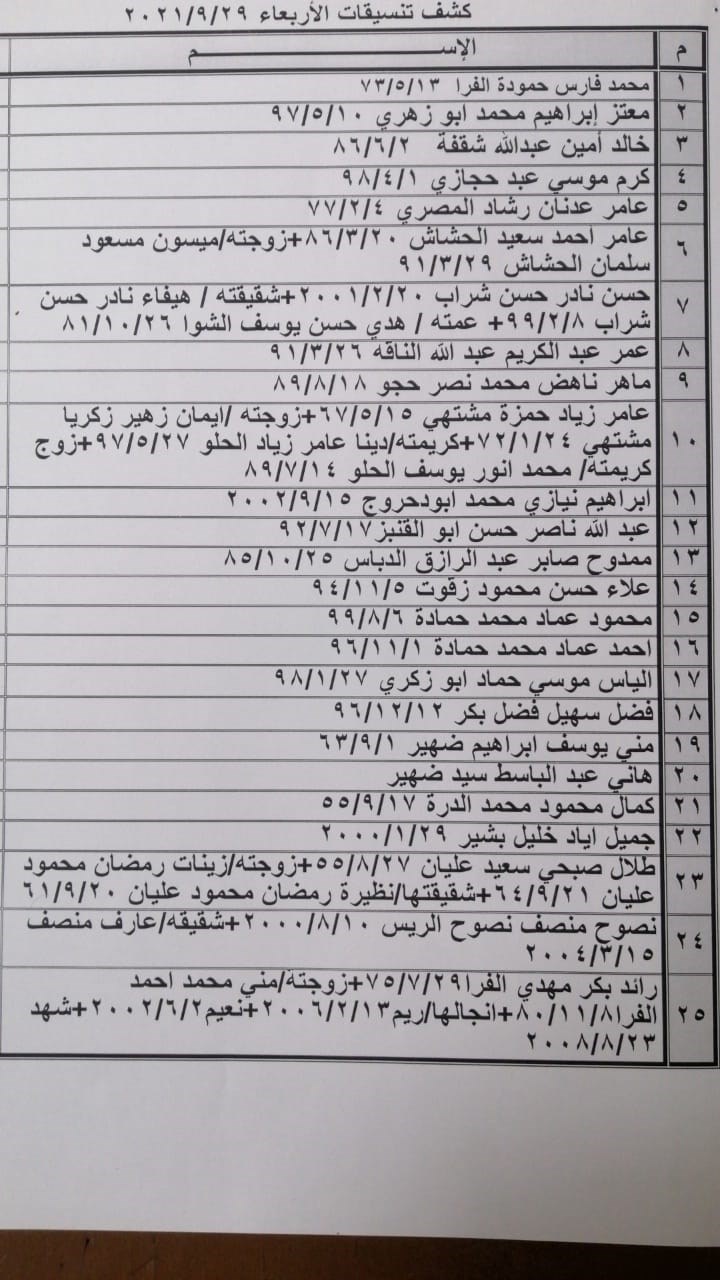 كشف تنسيقات الأربعاء ٢٠٢١/٩/٢٩
م الإســـــــــــــم
١ محمد فارس حمودة الفرا ٧٣/٥/١٣
٢ معتز إبراهيم محمد ابو زهري ٩٧/٥/١٠
٣ خالد أمين عبدالله شقفة ٨٦/٦/٢
٤ كرم موسي عبد حجازي ٩٨/٤/١
٥ عامر عدنان رشاد المصري ٧٧/٢/٤
٦ عامر احمد سعيد الحشاش ٨٦/٣/٢٠+زوجته/ميسون مسعود
سلمان الحشاش ٩١/٣/٢٩
٧ حسن نادر حسن شراب ٢٠٠١/٢/٢٠+شقيقته / هيفاء نادر حسن
شراب ٩٩/٢/٨+ عمته / هدي حسن يوسف الشوا ٨١/١٠/٢٦
٨ عمر عبد الكريم عبد الله الناقه ٩١/٣/٢٦
٩ ماهر ناهض محمد نصر حجو ٨٩/٨/١٨
١٠ عامر زياد حمزة مشتهي ٦٧/٥/١٥+زوجته /ايمان زهير زكريا
مشتهي ٧٢/١/٢٤+كريمته/دينا عامر زياد الحلو ٩٧/٥/٢٧+زوج
كريمته/ محمد انور يوسف الحلو ٨٩/٧/١٤
١١ ابراهيم نيازي محمد ابودحروج ٢٠٠٢/٩/١٥
١٢ عبد الله ناصر حسن ابو القنبز٩٢/٧/١٧
١٣ ممدوح صابر عبد الرازق الدباس ٨٥/١٠/٢٥
١٤ علاء حسن محمود زقوت ٩٤/١١/٥
١٥ محمود عماد محمد حمادة ٩٩/٨/٦
١٦ احمد عماد محمد حمادة ٩٦/١١/١
١٧ الياس موسي حماد ابو زكري ٩٨/١/٢٧
١٨ فضل سهيل فضل بكر ٩٦/١٢/١٢
١٩ مني يوسف ابراهيم ضهير ٦٣/٩/١
٢٠ هاني عبد الباسط سيد ضهير
٢١ كمال محمود محمد الدرة ٥٥/٩/١٧
٢٢ جميل اياد خليل بشير ٢٠٠٠/١/٢٩
٢٣ طلال صبحي سعيد عليان ٥٥/٨/٢٧+زوجته/زينات رمضان محمود
عليان ٦٤/٩/٢١+شقيقتها/نظيرة رمضان محمود عليان ٦١/٩/٢٠
٢٤ نصوح منصف نصوح الريس ٢٠٠٠/٨/١٠+شقيقه/عارف منصف
٢٠٠٤/٣/١٥
٢٥ رائد بكر مهدي الفرا٧٥/٧/٢٩+زوجتة/مني محمد احمد
الفرا٨٠/١١/٨+انجالها/ريم٢٠٠٦/٢/١٣+نعيم٢٠٠٢/٦/٢+شهد
٢٠٠٨/٨/٢٣